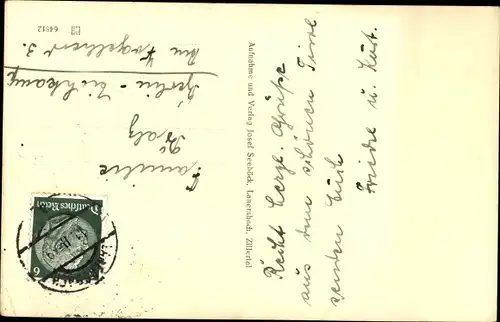 Recht herzl. Grüße
aus dem schönen Tirol
senden Euch
Friedel u. Kurt.
Aufnahme und Verlag Josef Seeböck, Lanersbach, Zillertal
64912
Familie
Berlin -
Am Vogelherd 3.
Deutsches Reich
6